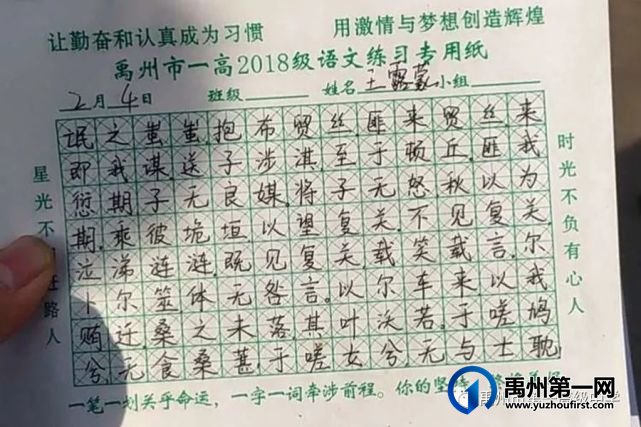 让勤奋和认真成为习惯 用激情与梦想创造辉煌
禹州市一高2018级语文练习专用纸
2月4日 班级 姓名 王露蒙 小组
星光不 赶路人
氓之蚩蚩,抱布贸丝,匪来贸丝,来
即我谋,送子涉淇,至于顿丘,匪我
愆期,子无良媒,将子无怒,秋以为
期,乘彼垝垣,以望复关,不见复关,
泣涕涟涟,既见复关,载笑载言,尔
卜尔筮,体无咎言,以尔车来,以我
贿迁,桑之未落,其叶沃若,于嗟鸠
兮,无食桑葚,于嗟女兮,无与士耽,
时光不负有心人
一笔一划关乎命运,一字一词牵涉前程。你的坚持
禹州第一网
www.yuzhoufirst.com